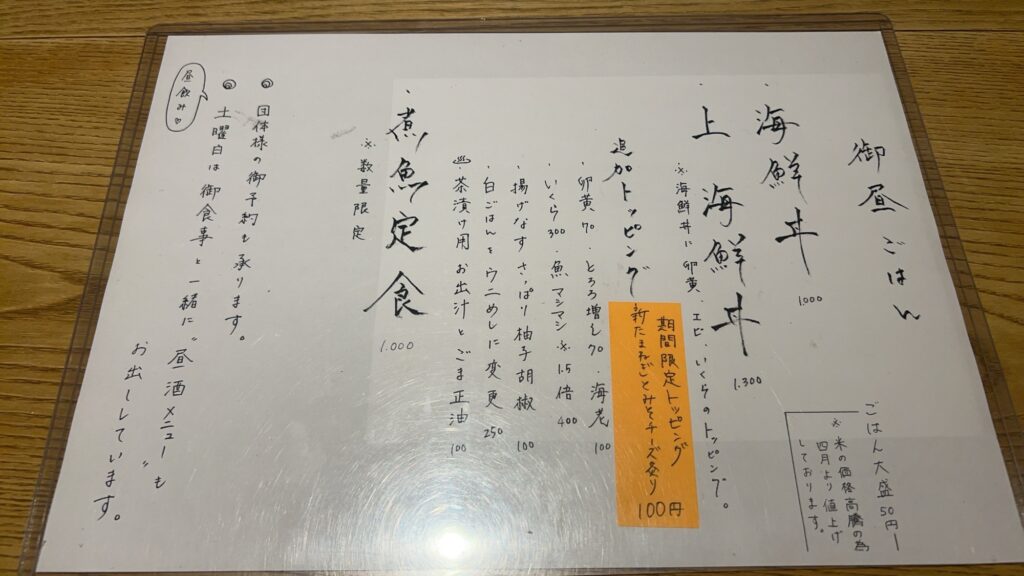 御昼ごはん
ごはん大盛50円
※米の価格高騰の為
四月より値上げ
しております。
・海鮮丼 1000
・上海鮮丼 1.300
※海鮮丼に卵黄、エビ、いくらのトッピング。
追加トッピング
期間限定トッピング
新たまねぎとみそチーズ炙り
100円
・卵黄70・とろろ増し70・海老100
・いくら300 魚マシマシ※1.5倍400
・揚げなすさっぱり柚子胡椒100
・白ごはんをウニめしに変更250
♨茶漬け用お出汁とごま正油100
・煮魚定食 1.000
※数量限定
◎団体様の御予約も承ります。
◎土曜日は御食事と一緒に"昼酒メニュー"も
お出ししています。
昼飲み♡